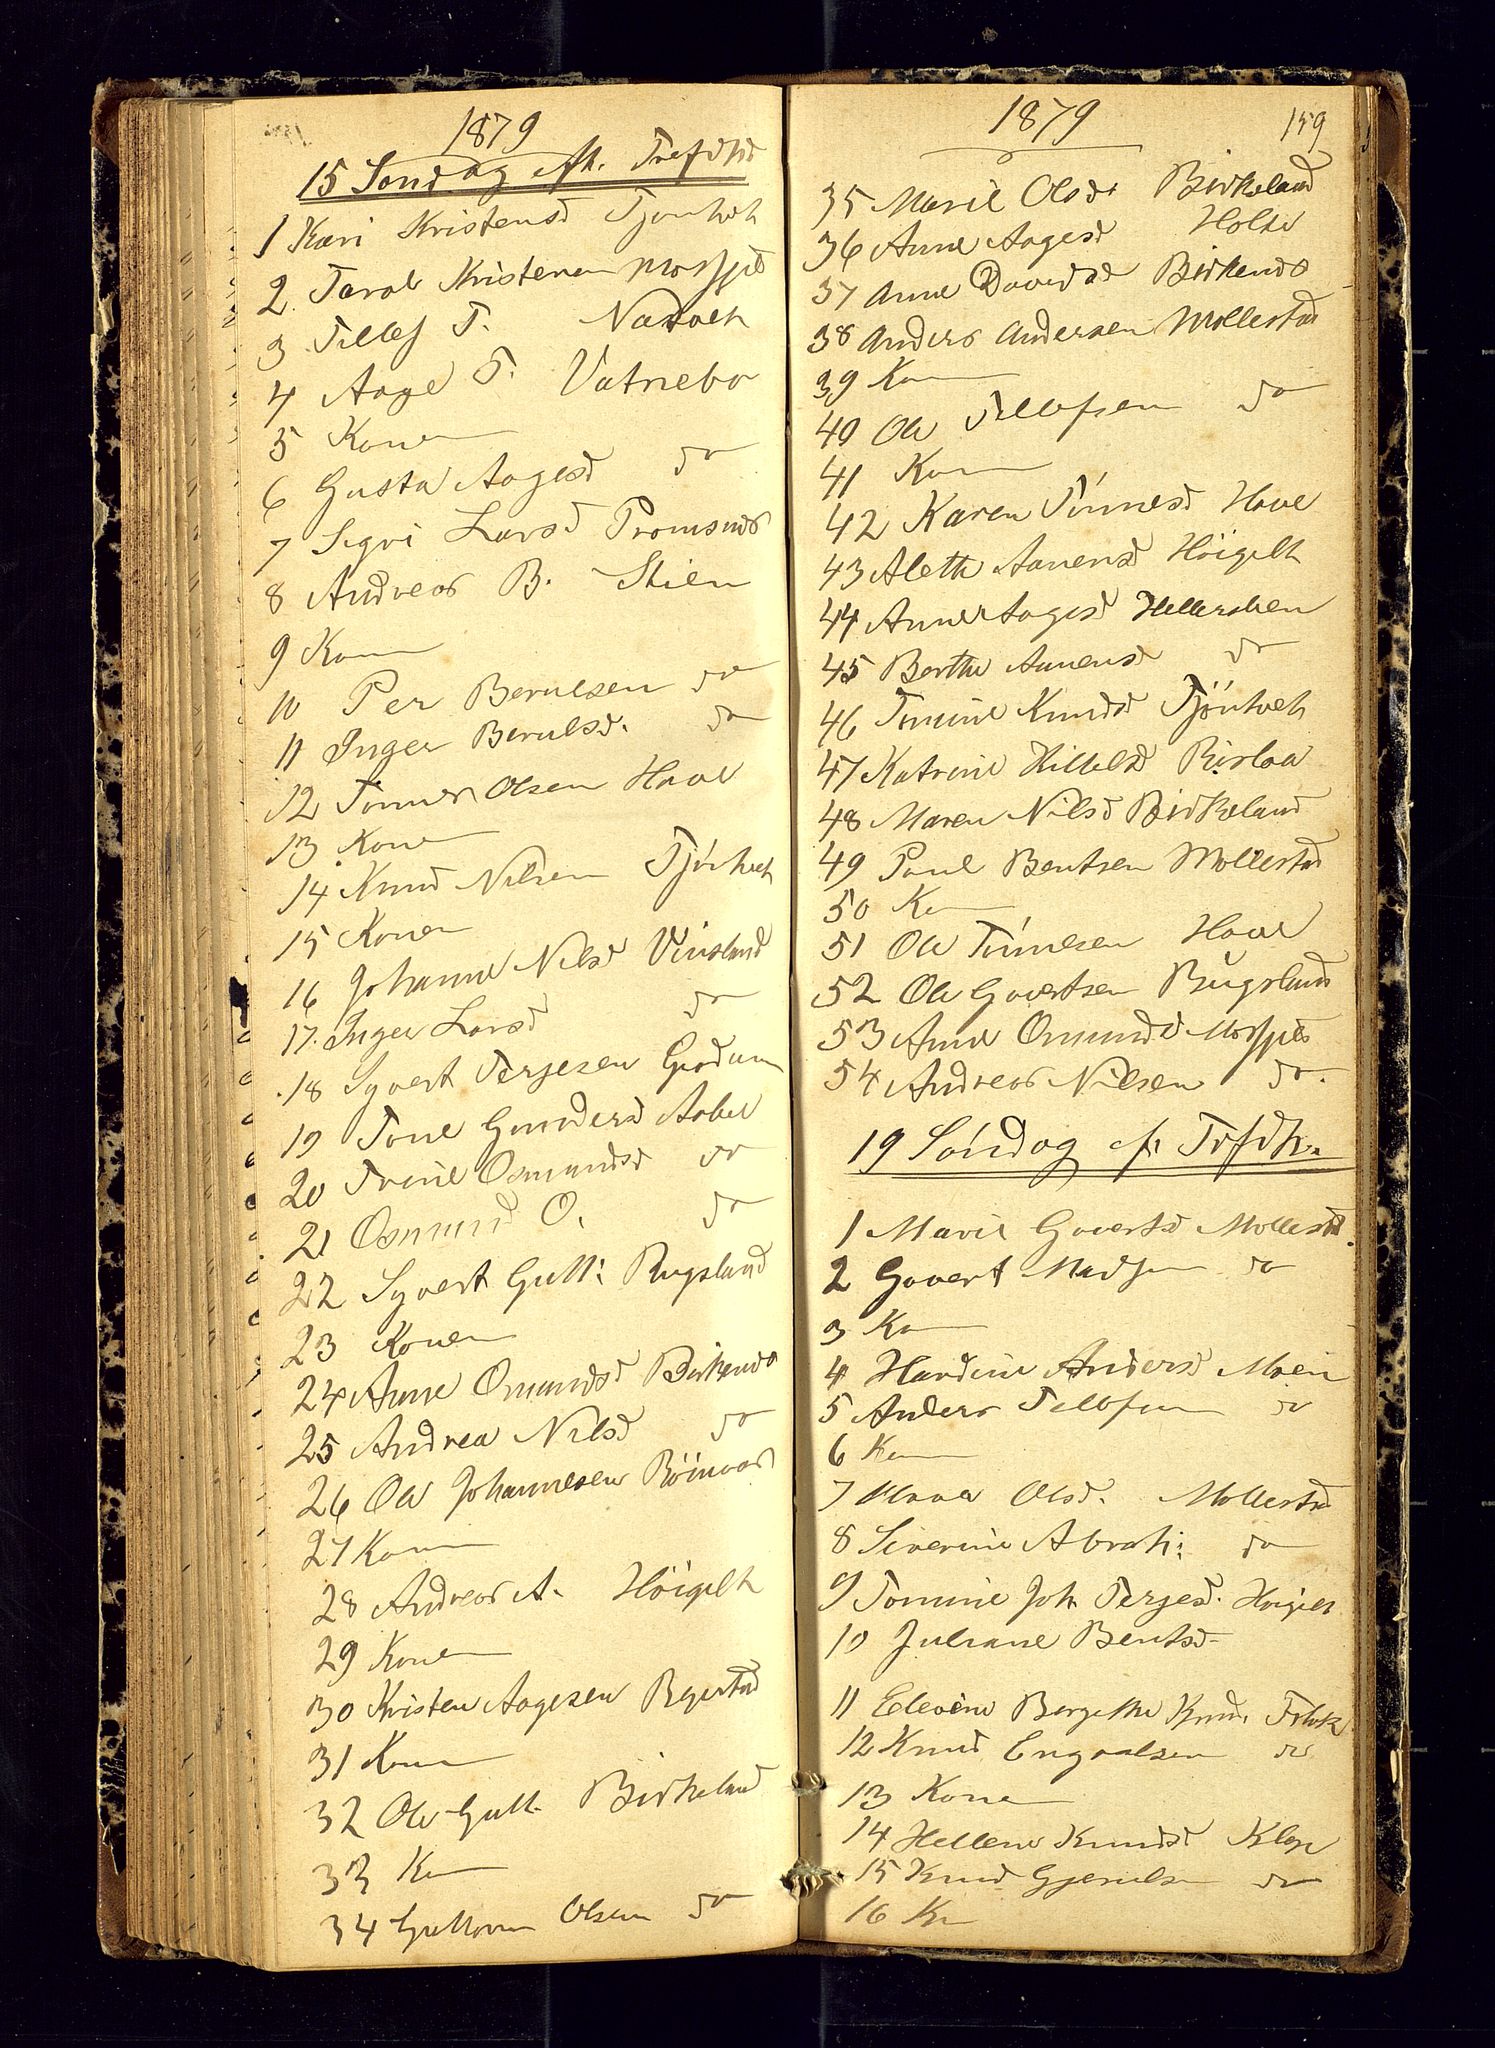 1879
15 Søndag eft. Trefdht
1 Kari Kristensd Tjønhvt
2 Tarol Kristensen Mosfjeld
3 Tellef T. Natvet
4 Aage T. Vatnebo
5 Konen
6 Gusta Aagesd do
7 Sigri Larsd
8 Andreas B. Stien
9 Kon
10 Per Berulsen do
11 Inger Berulsd. do
12 Tønnes Olsen Haave
13 Kone
14 Knud Nilsen Tjønhvt
15 Konen
16 Johanne Nilsd Vinsland
17. Inger Larsd do
18 Syvert Terjesen Grødum
19 Tone Gundersd
20 Trine Osmundsd do
21 Osmund O. do
22 Syvert Gutt: Rugsland
23 Konen
24 Anne Omundsd Birkends
25 Andrea Nilsd do
26 Ole Johannesen
27 Kon
28 Andreas A. Høigilt
29 Konen
30 Kristen Aagesen
31 Kon
32 Ole Gutt. Birkeland
33 Kn
34 Guttorm Olsen do
1879 159
35 Marie Olsd Birkeland
36 Anne Aagesd
37 Anne Davidsd Birkends
38 Anders Andersen Mollestad
39 Kon
40 Ole Tellefsen do
41 Kon
42 Karen Tønnesd Haave
43 Alette Aanensd Høigilt
44 Anne Aagesd
45 Berthe Aanensd do
46 Tomine Knudsd Tjønhvt
47 Katrine Killelsd Risløa
48 Maren Nilsd Birkeland
49 Poul Bentsen Mollestad
50 Kn
51 Ole Tønnesen Haave
52 Ole Govertsen Rugsland
53 Anne Omundsd Mosfjeld
54 Andreas Nilsen do.
19 Søndag ef. Trfdh.
1 Marie Govertsd Mollestad.
2 Govert Madsen do
3 Kn
4 Hardine Andersd Moen
5 Anders Tellefsen do
6 Kn
7 Olsd. Mollestad
8 Severine Abrah: do
9 Tomine Joh. Terjesd. Høigilt
10 Juliane Bentsd
11 Elevine Bergethe Knud.
12 Knud Engvalsen do
13 Kone
14 Hellene Knudsd Klep
15 Knud Gjerulsn do
16 Kn